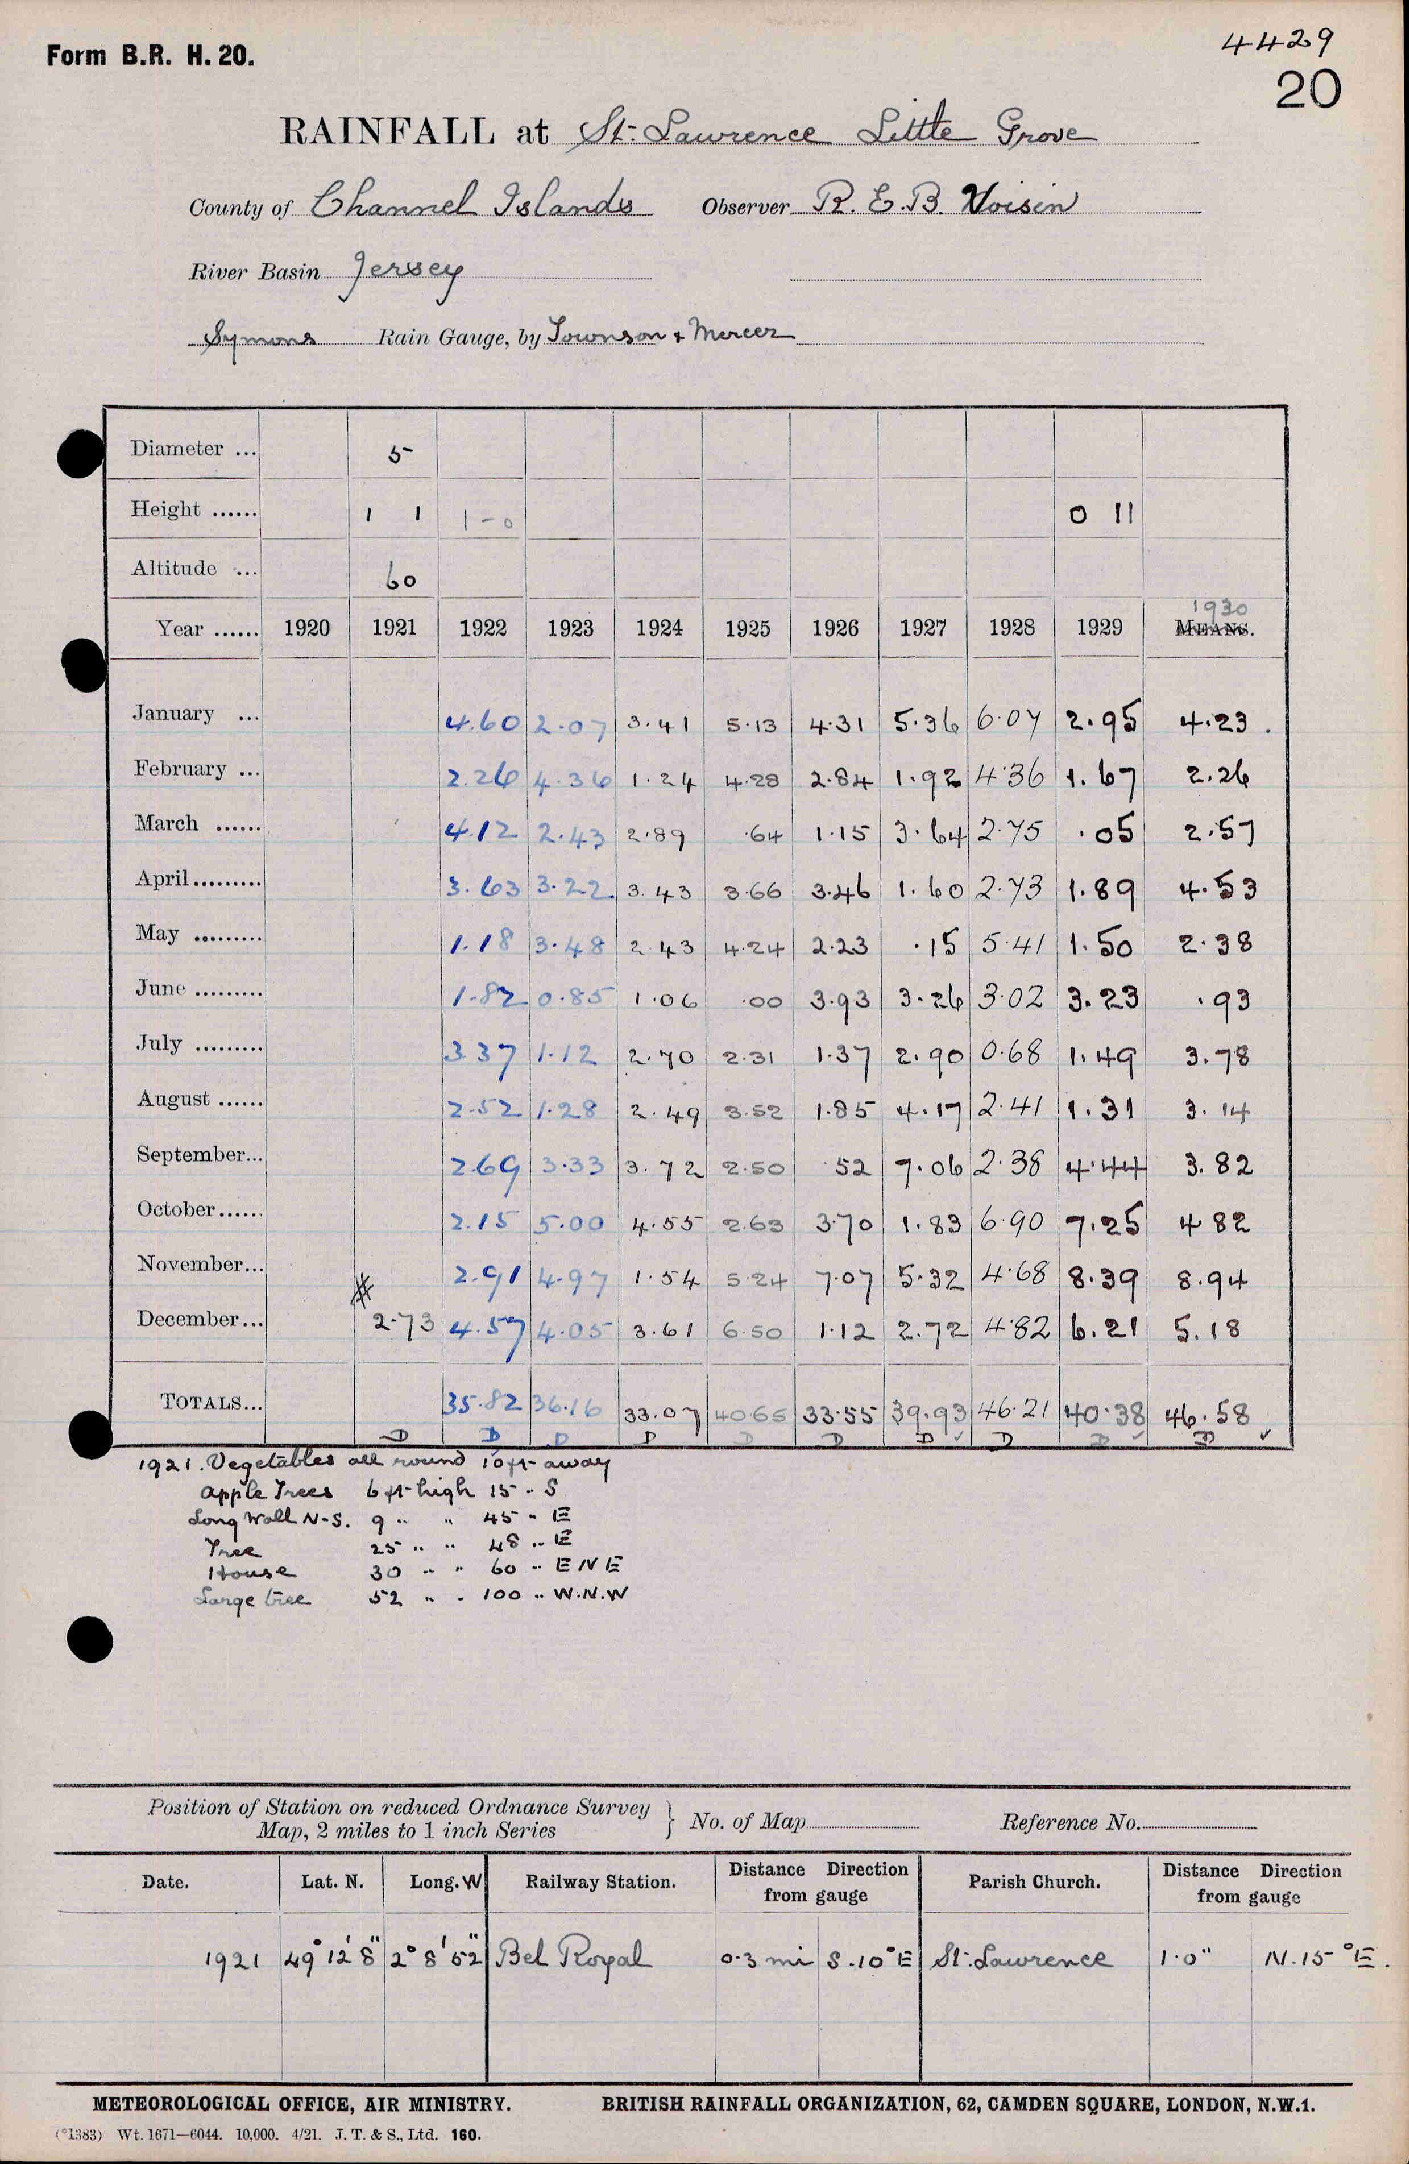 Form B.R. H. 20.
4429
20
RAINFALL at St. Lawrence Little Grove
County of Channel Islands Observer R. E. B. Voisin
River Basin Jersey
Symons Rain Gauge, by Townson & Mercer
Diameter ... 5
Height ...... 1 1 1-0 0 11
Altitude ... 60
1930
Year ...... 1920 1921 1922 1923 1924 1925 1926 1927 1928 1929 MEANS.
January ... 4.60 2.07 3.41 5.13 4.31 5.36 6.07 2.95 4.23.
February ... 2.26 4.36 1.24 4.28 2.84 1.92 4.36 1.67 2.26
March ...... 4.12 2.43 2.89 .64 1.15 3.64 2.75 .05 2.57
April......... 3.63 3.22 3.43 3.66 3.46 1.60 2.73 1.89 4.53
May ......... 1.18 3.48 2.43 4.24 2.23 .15 5.41 1.50 2.38
June ......... 1.82 0.85 1.06 .00 3.93 3.26 3.02 3.23 .93
July ......... 3.37 1.12 2.70 2.31 1.37 2.90 0.68 1.49 3.78
August ...... 2.52 1.28 2.49 3.52 1.85 4.17 2.41 1.31 3.14
September... 2.69 3.33 3.72 2.50 .52 7.06 2.38 4.44 3.82
October...... 2.15 5.00 4.55 2.63 3.70 1.83 6.90 7.25 4 82
November... 2.91 4.97 1.54 5.24 7.07 5.32 4.68 8.39 8.94
December... # 2.73 4.57 4.05 3.61 6.50 1.12 2.72 4.82 6.21 5.18
TOTALS... 35.82 36.16 33.07 40.65 33.55 39.93 46.21 40.38 46.58
D D D D D D D ✓ D D ✓ D ✓
1921. Vegetables all round 10 ft away
Apple Trees 6 ft high 15 " S
Long Wall N-S. 9 " " 45 " E
Tree 25 " " 48 " E
House 30 " " 60 " ENE
Large tree 52 " " 100 " W.N.W
Position of Station on reduced Ordnance Survey
Map, 2 miles to 1 inch Series } No. of Map Reference No.
Date. Lat. N. Long. W Railway Station. Distance Direction from gauge Parish Church. Distance Direction from gauge
1921 49° 12' 8" 2° 8' 52" Bel Royal 0.3 mi S.10°E St. Lawrence 1.0" N.15°E.
METEOROLOGICAL OFFICE, AIR MINISTRY. BRITISH RAINFALL ORGANIZATION, 62, CAMDEN SQUARE, LONDON, N.W.1.
(*1383) Wt. 1671—6044. 10,000. 4/21. J. T. & S., Ltd. 160.